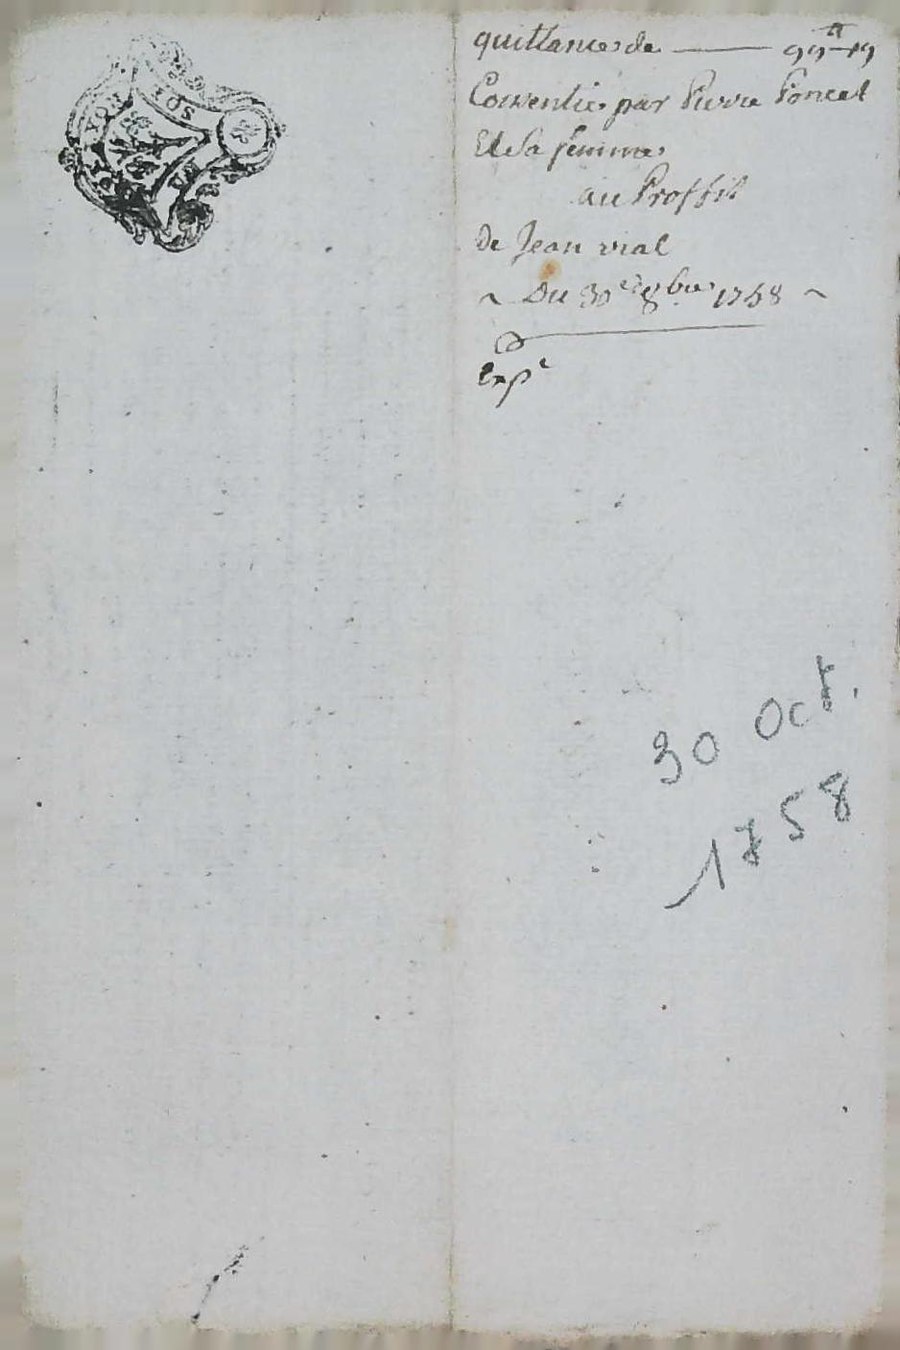 quittance de —— 99ᵗᵗ 19
Consentie par Pierre Poncet
Et Sa femme
au Proffit
de Jean vial
~ Du 30ᵉ 8bre 1758 ~
Expᵉ
30 Oct.
1758